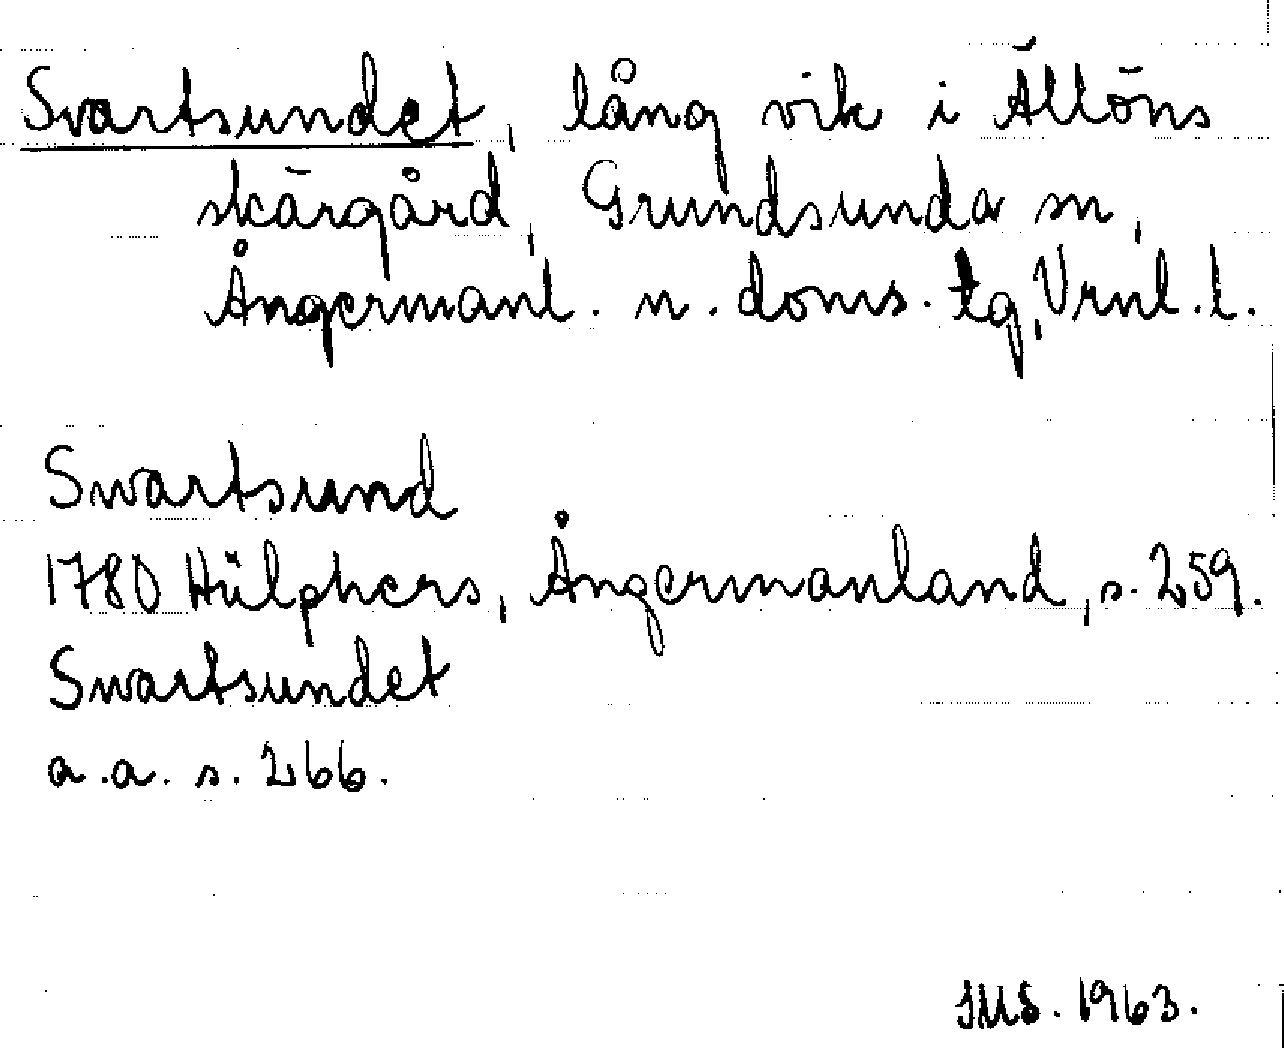 Svartsundet, lång vik i Ällöns
skärgård, Grundsunda sn,
Ångermanl. n. doms. tg, Vrnl. l.
Swartsund
1780 Hülphers, Ångermanland, s. 259.
Swartsundet
a.a. s. 266.
IMS. 1963.